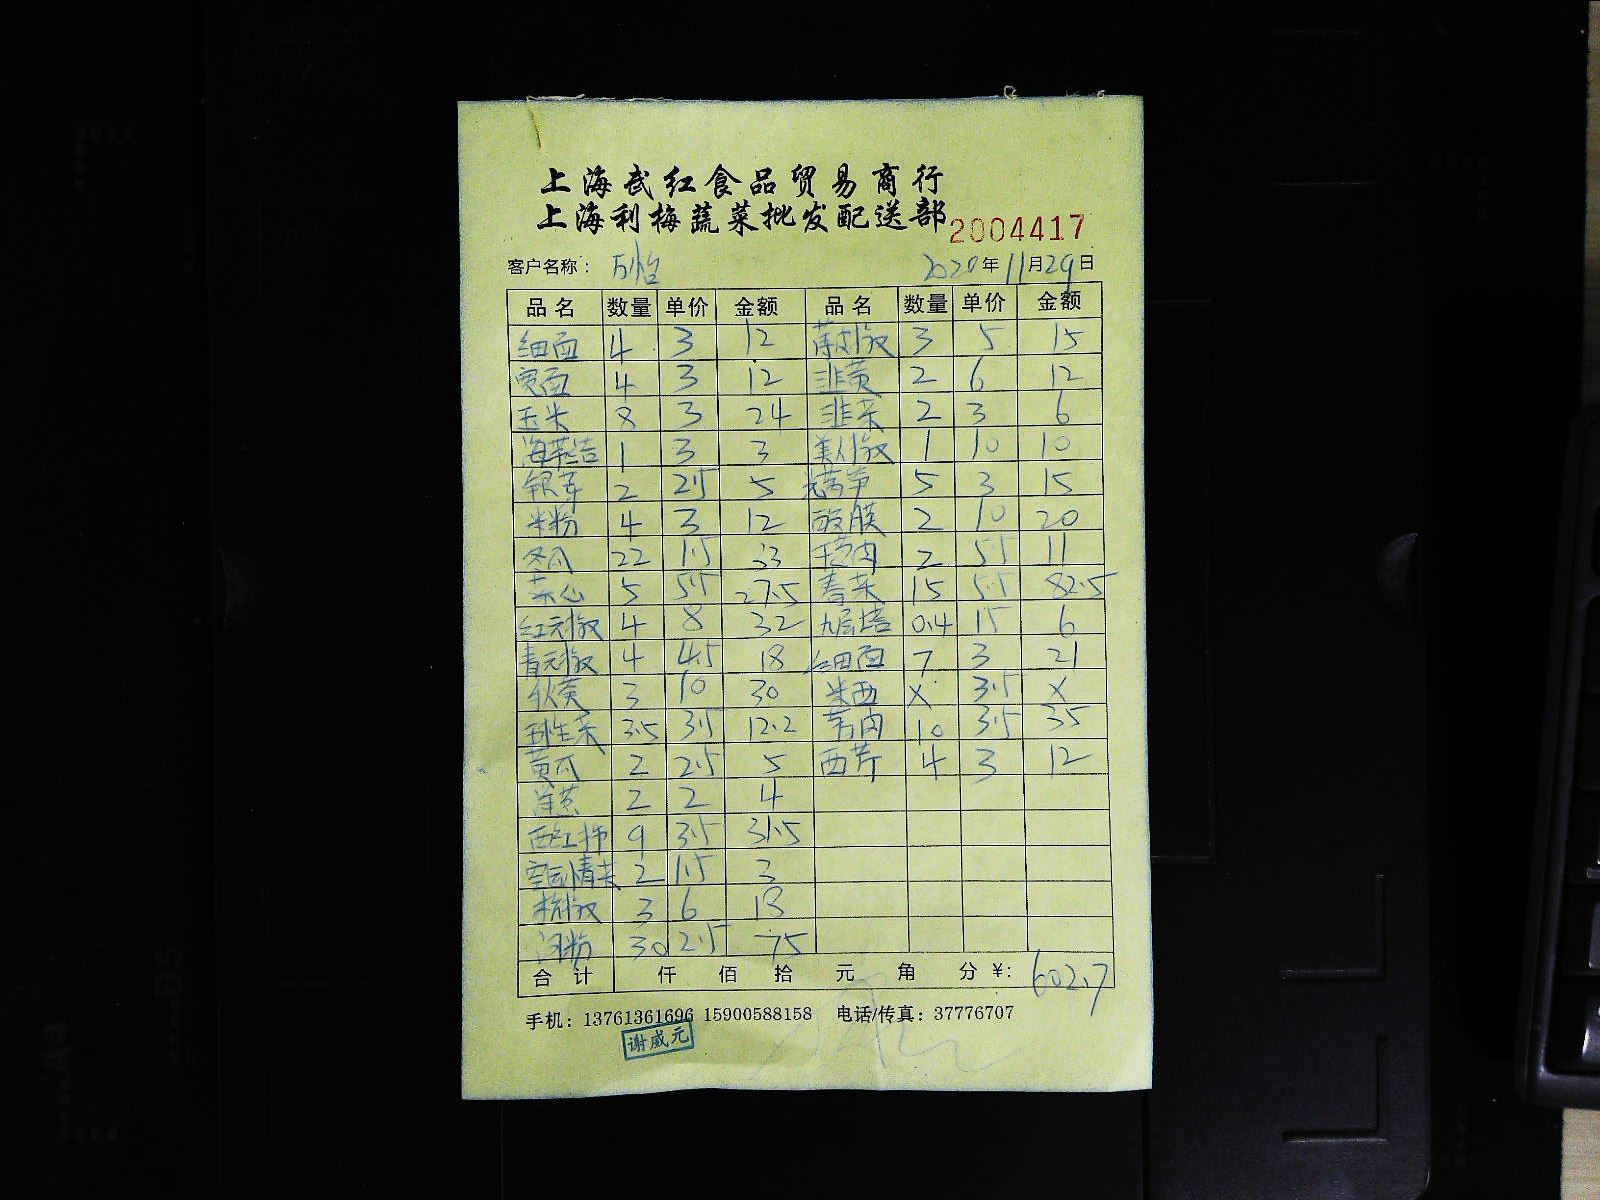 上海武红食品贸易商行
上海利梅蔬菜批发配送部 2004417
客户名称： 万怡 2020年11月29日
品名 数量 单价 金额 品名 数量 单价 金额
细面 4 3 12 薄皮椒 3 5 15
宽面 4 3 12 韭黄 2 6 12
玉米 8 3 24 韭菜 2 3 6
海带结 1 3 3 美人椒 1 10 10
银芽 2 2.5 5 光莴笋 5 3 15
米粉 4 3 12 酸膜 2 10 20
冬瓜 22 1.5 33 2 5.5 11
菜心 5 5.5 27.5 春菜 15 5.5 82.5
红元椒 4 8 32 九层塔 0.4 15 6
青元椒 4 4.5 18 细面 7 3 21
秋葵 3 10 30 米西 X 3.5 X
3.5 3.5 12.2 10 3.5 35
黄瓜 2 2.5 5 西芹 4 3 12
洋葱 2 2 4
西红柿 9 3.5 31.5
2 1.5 3
杭椒 3 6 18
河粉 30 2.5 75
合计 仟 佰 拾 元 角 分 ¥: 602.7
手机：13761361696 15900588158 电话/传真：37776707
谢威元